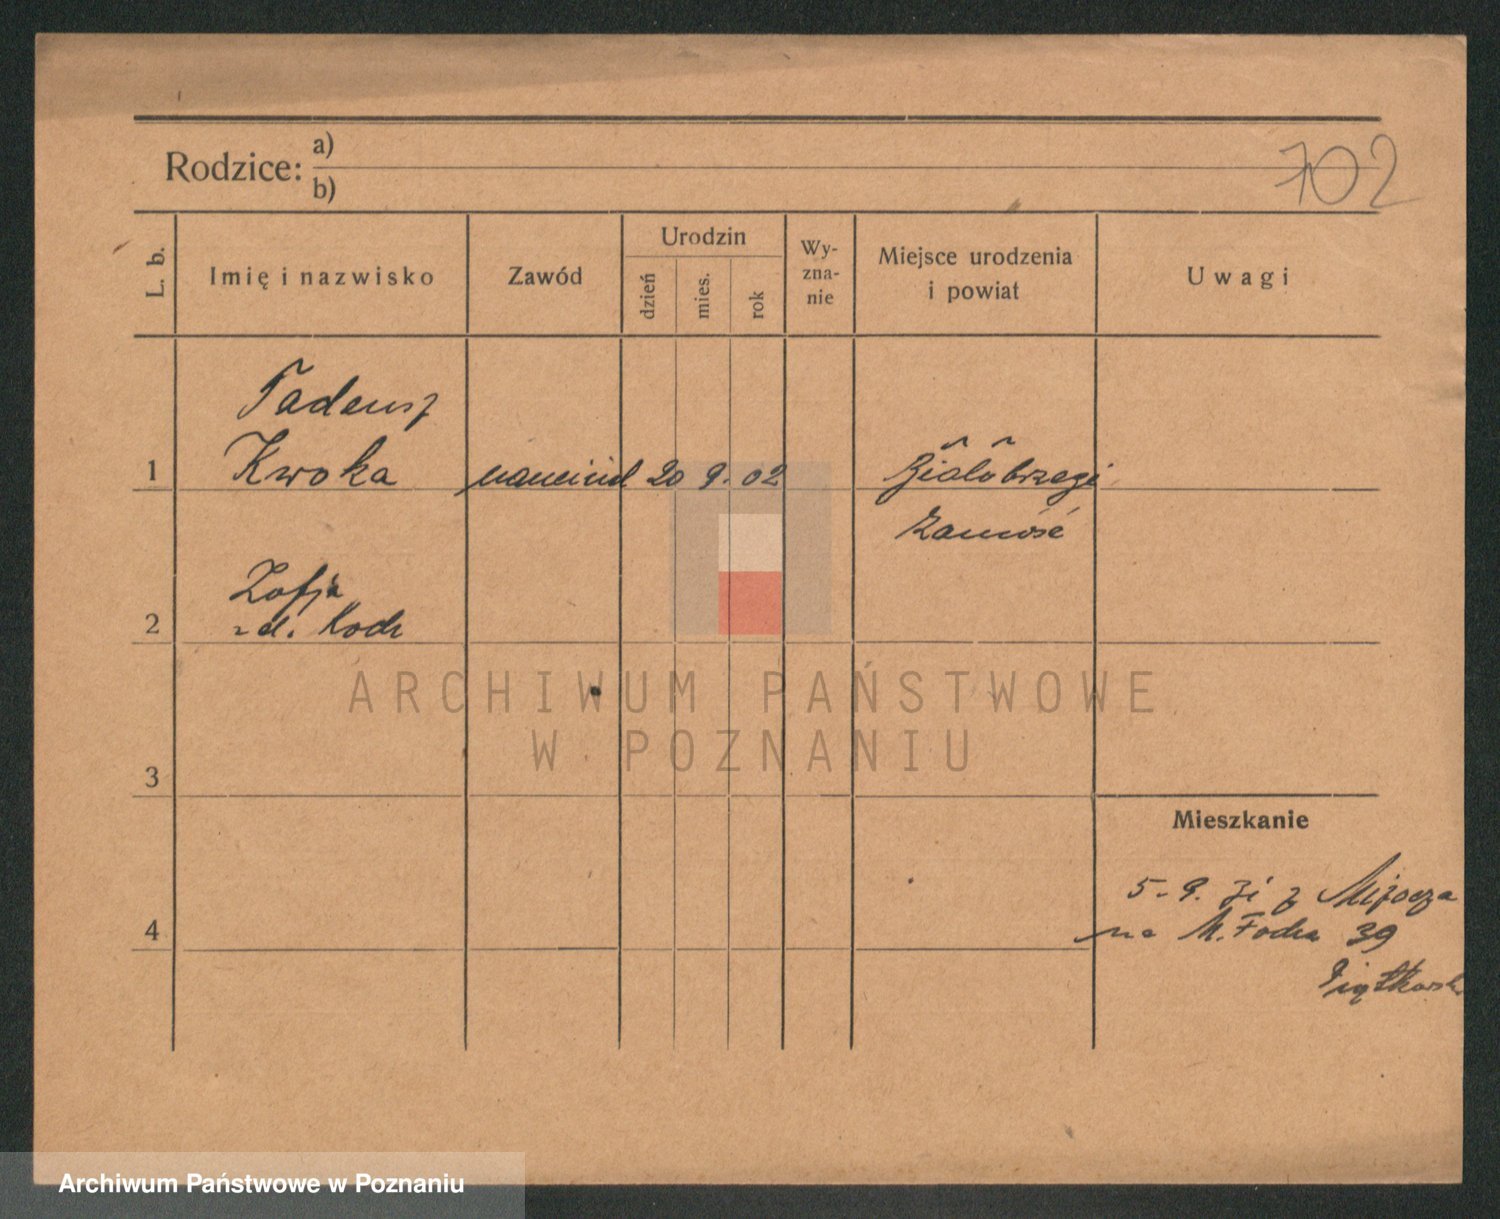 702
Rodzice: a)
b)
L. b.
Imię i nazwisko
Zawód
Urodzin
dzień
mies.
rok
Wy-
zna-
nie
Miejsce urodzenia
i powiat
Uwagi
Tadeusz
1 Kwoka 20 9. 02 Białobrzegi
Zamość
Zofja
2 z d. Koch
ARCHIWUM PAŃSTWOWE
W POZNANIU
3
Mieszkanie
5.9. z Mizocza
4 na M. Focha 39
Archiwum Państwowe w Poznaniu